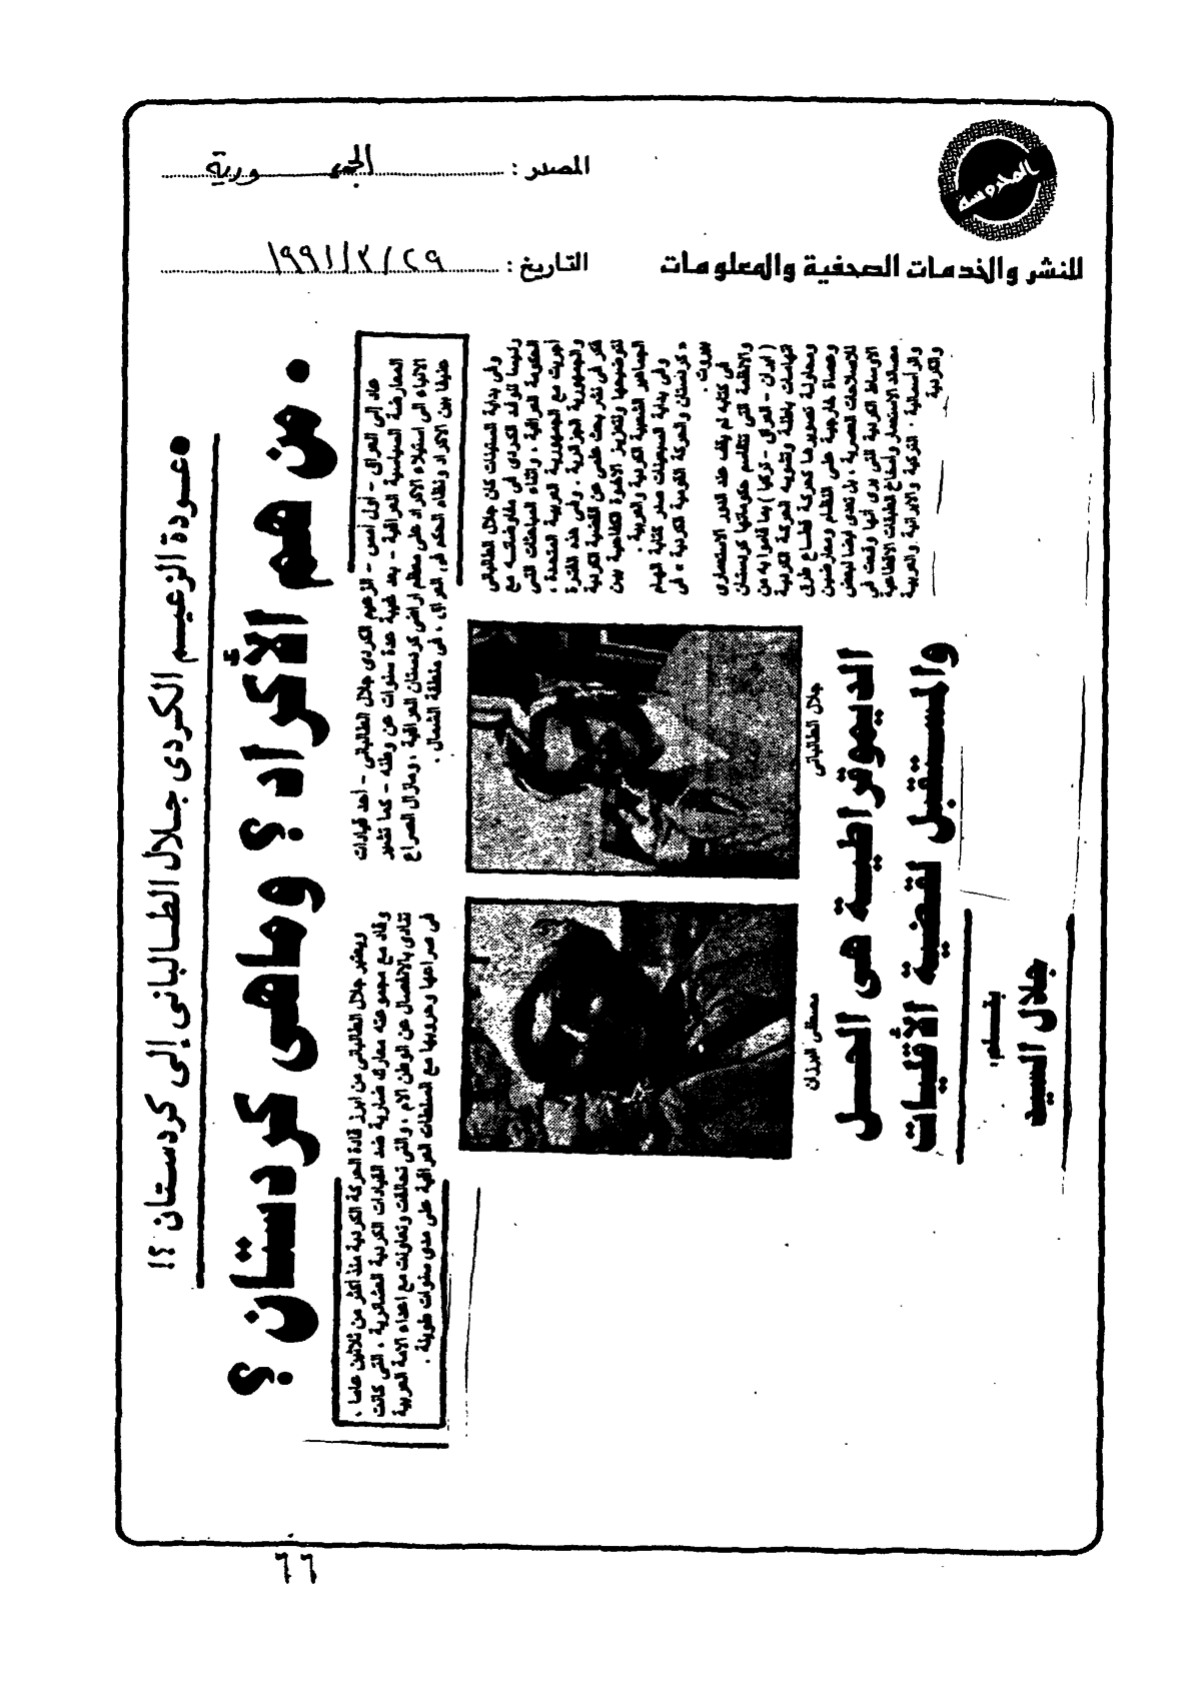 المحروسة
للنشر والخدمات الصحفية والمعلومات
المصدر : الجمهورية
التاريخ : ٢٩/٣/١٩٩١
● عودة الزعيم الكردى جلال الطالبانى إلى كردستان ؟!
● من هم الأكراد ؟ وماهى كردستان ؟
عاد إلى العراق - أول أمس - الزعيم الكردى جلال الطالبانى - أحد قيادات
المعارضة السياسية العراقية - بعد غيبة عدة سنوات عن وطنه - كما تشير
الأنباء إلى استيلاء الأكراد على معظم أراضى كردستان العراقية ، ومازال الصراع
عنيفا بين الأكراد ونظام الحكم فى العراق ، فى منطقة الشمال .
ويعتبر جلال الطالبانى من أبرز قادة الحركة الكردية منذ أكثر من ثلاثين عاما ،
وقاد مع مجموعته معارك ضارية ضد القيادات الكردية العشائرية ، التى كانت
تنادى بالانفصال عن الوطن الأم ، والتى تحالفت وتعاونت مع أعداء الأمة العربية
فى صراعها وحروبها مع السلطات العراقية على مدى سنوات طويلة .
وفى بداية الستينات كان جلال الطالبانى
رئيسا للوفد الكردى فى مفاوضاته مع
الحكومة العراقية ، وأثناء المباحثات التى
أجريت مع الجمهورية العربية المتحدة ،
والجمهورية الجزائرية . وفى هذه الفترة
فكر فى نشر بحث علمى عن القضية الكردية
لتوضيحها ولتعزيز الأخوة الكفاحية بين
الجماهير الشعبية الكردية والعربية .
وفى بداية السبعينات صدر كتابه الهام
« كردستان والحركة القومية الكردية » فى
بيروت .
فى كتابه لم يقف عند الدور الاستعمارى
والأنظمة التى تتقاسم حكوماتها كردستان
( إيران - العراق - تركيا ) بما قاموا به من
اتهامات باطلة وتشويه للحركة الكردية
ومحاولة تصويرها كحركة قطاع طرق
وعصاة خارجية على النظم ومعارضين
للإصلاحات العصرية ، بل تعدى أيضا لبعض
الأوساط الكردية التى يرى أنها وقعت فى
مصائد الاستعمار وأطماع الطبقات الإقطاعية
والرأسمالية . التركية والإيرانية والعربية
والكردية
جلال الطالبانى
مصطفى البرزانى
الديموقراطية هى الحل
والمستقبل لقضية الأقليات
بقلم :
جلال السيد
٦٦